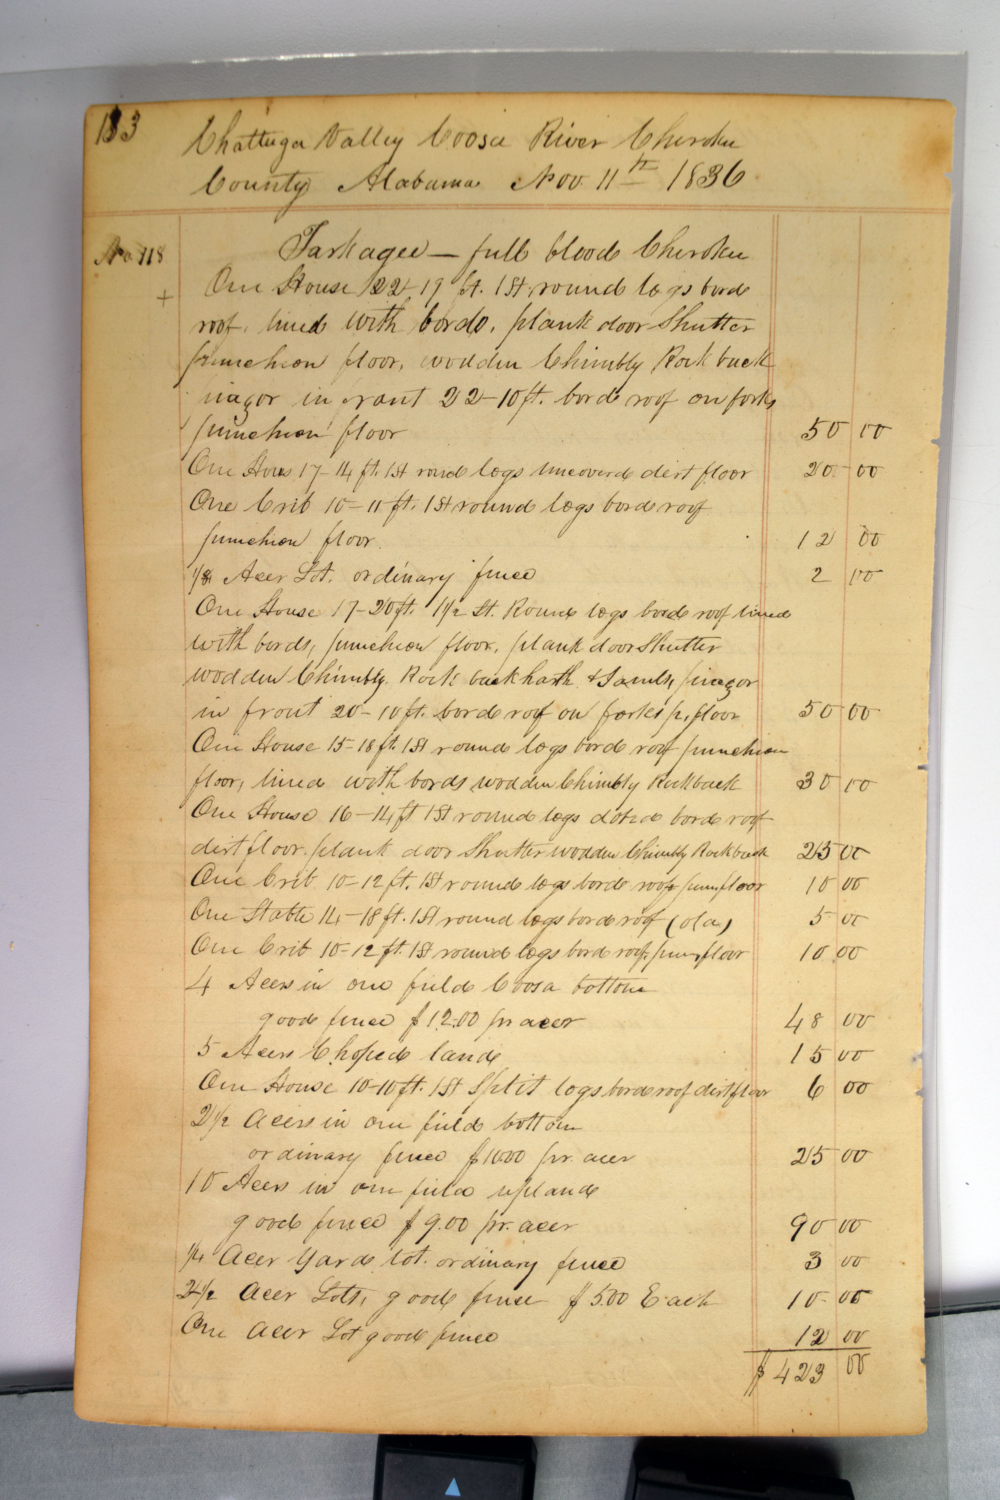 183
Chattuga Valley Coosa River Cherokee
County Alabama Nov. 11th 1836
No 118 Tarkagee — full blood Cherokee
+ One House 22-19 ft. 1 St. round logs bord
roof, lined with bords, plank door Shutter
puncheon floor, wodden Chimbly Rock back
piazor in front 22-10 ft. bord roof on forks
puncheon floor 50 00
One Hous 17-14 ft. 1 St round logs uncoverd dirt floor 20 00
One Crib 10-11 ft. 1 St round logs bord roof
puncheon floor. 12 00
1/8 Acer Lot. ordinary fence 2 00
One House 17-20 ft. 1 1/2 St. Round logs bord roof lined
with bords, puncheon floor, plank door Shutter
wodden Chimbly. Rock back harth & Jambs, piazor
in front 20-10 ft. bord roof on forks p. floor 50 00
One House 15-18 ft. 1 St round logs bord roof puncheon
floor, lined with bords wodden Chimbly Rock back 30 00
One House 16-14 ft 1 St round logs bord roof
dirt floor. plank door Shutter wodden Chimbly Rock back 25 00
One Crib 10-12 ft. 1 St round logs bord roof pun floor 10 00
One Stable 14-18 ft. 1 St round logs bord roof (old) 5 00
One Crib 10-12 ft. 1 St round logs bord roof, pun floor 10 00
4 Acers in one field Coosa bottom
good fence $12.00 pr acer 48 00
5 Acers Choped land 15 00
One House 10-10 ft. 1 St Split logs bord roof dirt floor 6 00
2 1/2 Acers in one field bottom
ordinary fence $10.00 pr. acer 25 00
10 Acers in one field upland
good fence $9.00 pr. acer 90 00
1/4 Acer Yard lot. ordinary fence 3 00
2 1/2 Acer Lots, good fence $5.00 Each 10 00
One Acer Lot good fence 12 00
$ 423 00